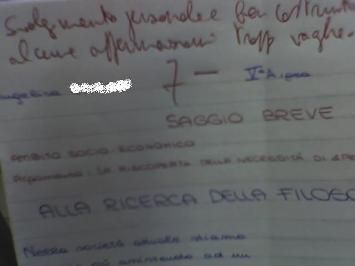 Svolgimento personale e ben costruito
alcune affermazioni troppo vaghe.
7-
SAGGIO BREVE
AMBITO SOCIO-ECONOMICO
ARGOMENTO: LA RISCOPERTA DELLA NECESSITÀ DI
ALLA RICERCA DELLA FILOSO
Nella società attuale stiamo
ad un